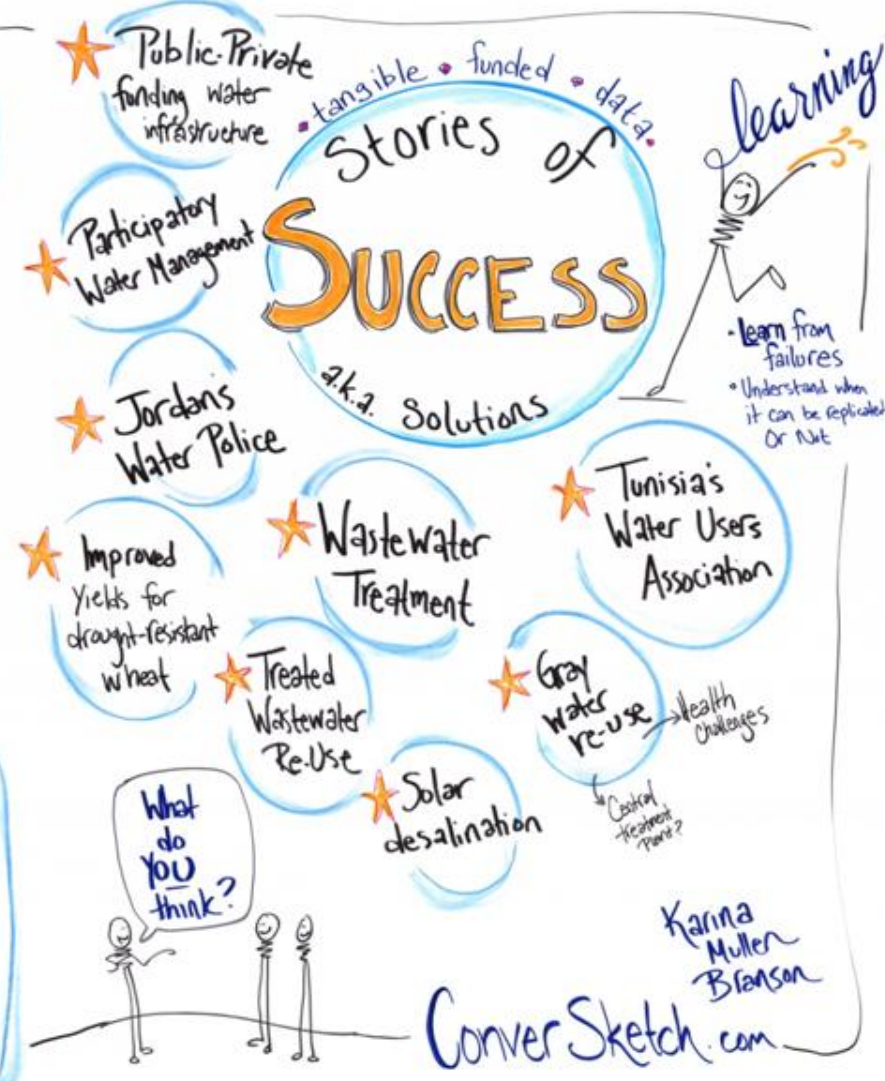 Public-Private
funding water
infrastructure
• tangible • funded • data •
Stories of
SUCCESS
a.k.a. Solutions
learning
• Learn from
failures
• Understand when
it can be replicated
Or Not
Participatory
Water Management
Jordan's
Water Police
Improved
Yields for
drought-resistant
wheat
Wastewater
Treatment
Tunisia's
Water Users
Association
Treated
Wastewater
Re-Use
Gray
water
re-use
Health
Challenges
Central
treatment
Plant?
Solar
desalination
What
do
YOU
think?
Karina
Mullen
Branson
ConverSketch.com